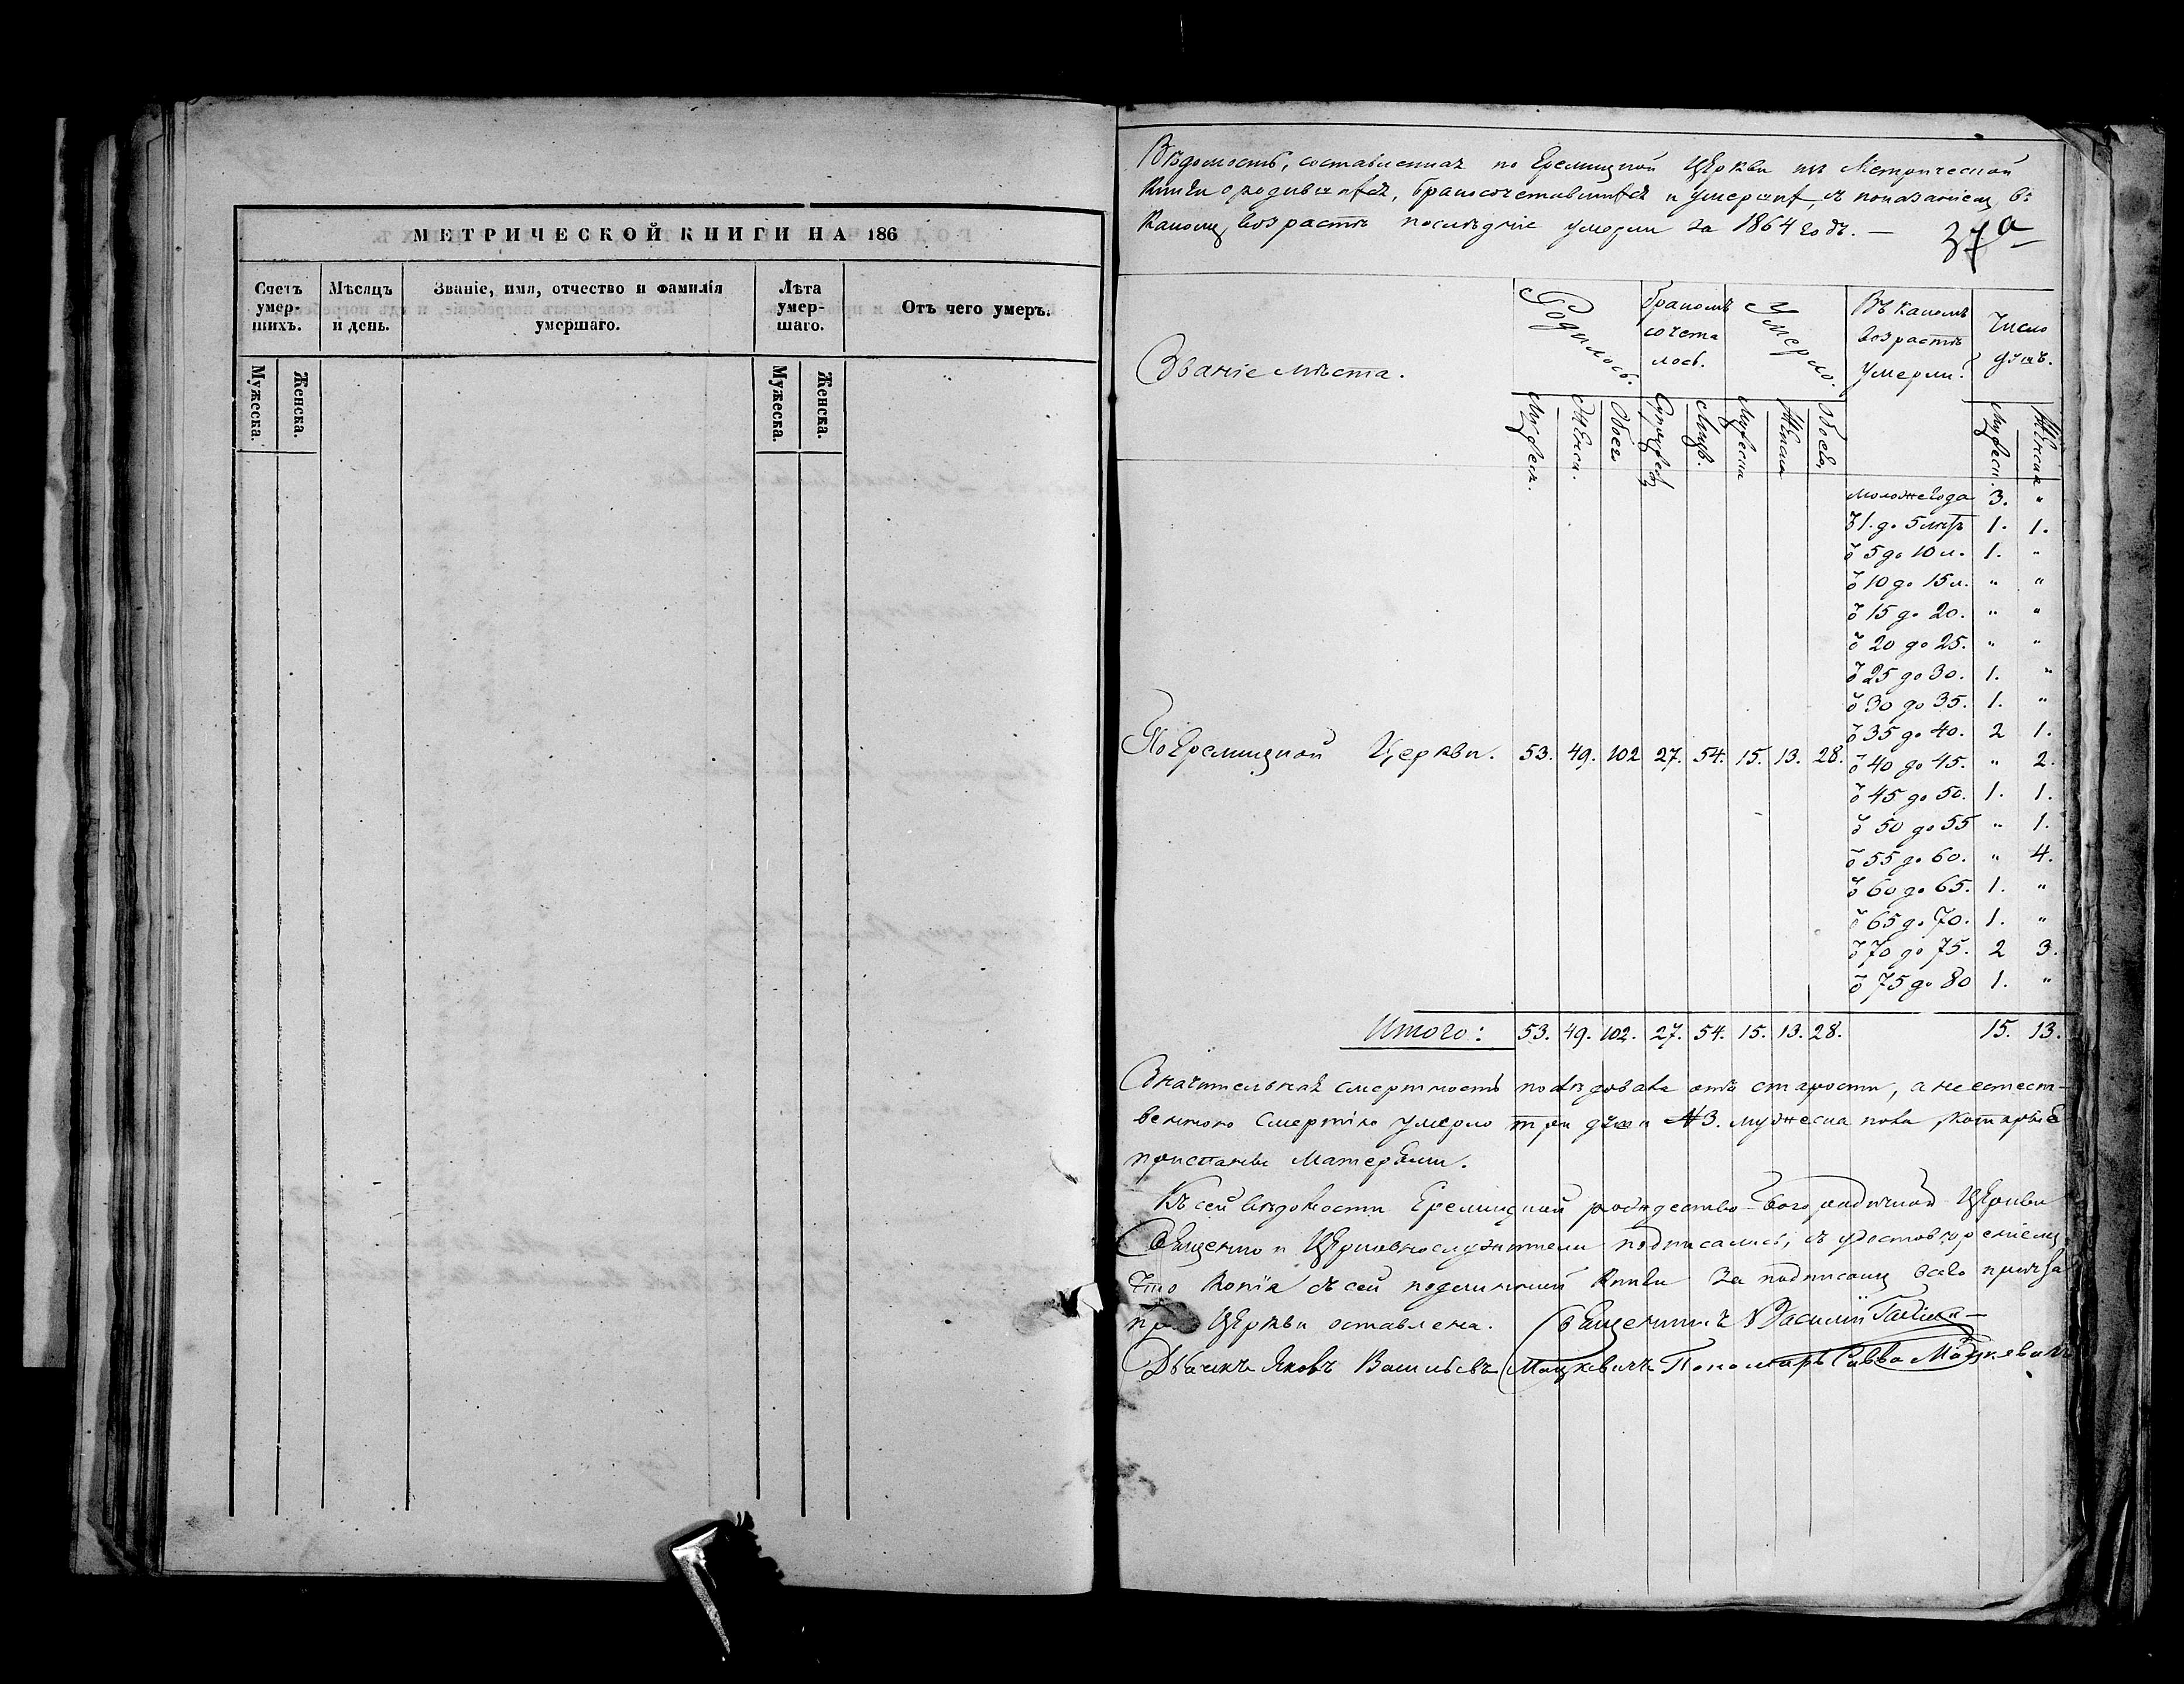 МЕТРИЧЕСКОЙ КНИГИ НА 186
Счетъ умер-шихъ.
Мѣсяцъ и день.
Званіе, имя, отчество и фамилія умершаго.
Лѣта умер-шаго.
Отъ чего умеръ.
Мужеска.
Женска.
Мужеска.
Женска.
Вѣдомость, составленная по Еремицкой Церкви изъ Метрической
Книги о родившихся, бракосочетавшихся и умершихъ, съ показаніемъ въ
какомъ возрастѣ послѣдніе умерли за 1864 годъ. —
37а
Званіе мѣста.
Родилось.
Бракомъ сочета лось.
Умерло.
Въ какомъ возрастѣ умерли?
Число душъ.
Мужеск.
Женск.
Обоего
Супружес
Лицъ.
Мужеска
Женска
Обоего
Мужеск.
Женска
моложе года 3. "
ѿ 1. до 5 лѣтъ 1. 1.
ѿ 5 до 10 л. 1. "
ѿ 10 до 15 л. " "
ѿ 15 до 20. " "
ѿ 20 до 25. " "
ѿ 25 до 30. 1. "
ѿ 30 до 35. 1. "
ѿ 35 до 40. 2 1.
По Еремицкой Церкви. 53. 49. 102 27. 54. 15. 13. 28.
ѿ 40 до 45. " 2.
ѿ 45 до 50. 1. 1.
ѿ 50 до 55 " 1.
ѿ 55 до 60. " 4.
ѿ 60 до 65. 1. "
ѿ 65 до 70. 1. "
ѿ 70 до 75. 2 3.
ѿ 75 до 80 1. "
Итого: 53. 49. 102. 27. 54. 15. 13. 28. 15. 13.
Значительная смертность отъ старости, а неестест-
венною смертію умерло три души 3. мужеска пола, которые
приспаны Матерями.
Къ сей вѣдомости Еремицкой рождество-Богородичной Церкви
Священно и Церковнослужители подписались, съ удостовѣреніемъ
что копія съ сей подлинной книги за подписомъ всего причта
при Церкви оставлена. Священникъ Василій
Дьячекъ Яковъ Васильевъ Мацкевичъ Пономарь Савва Мацкевичъ